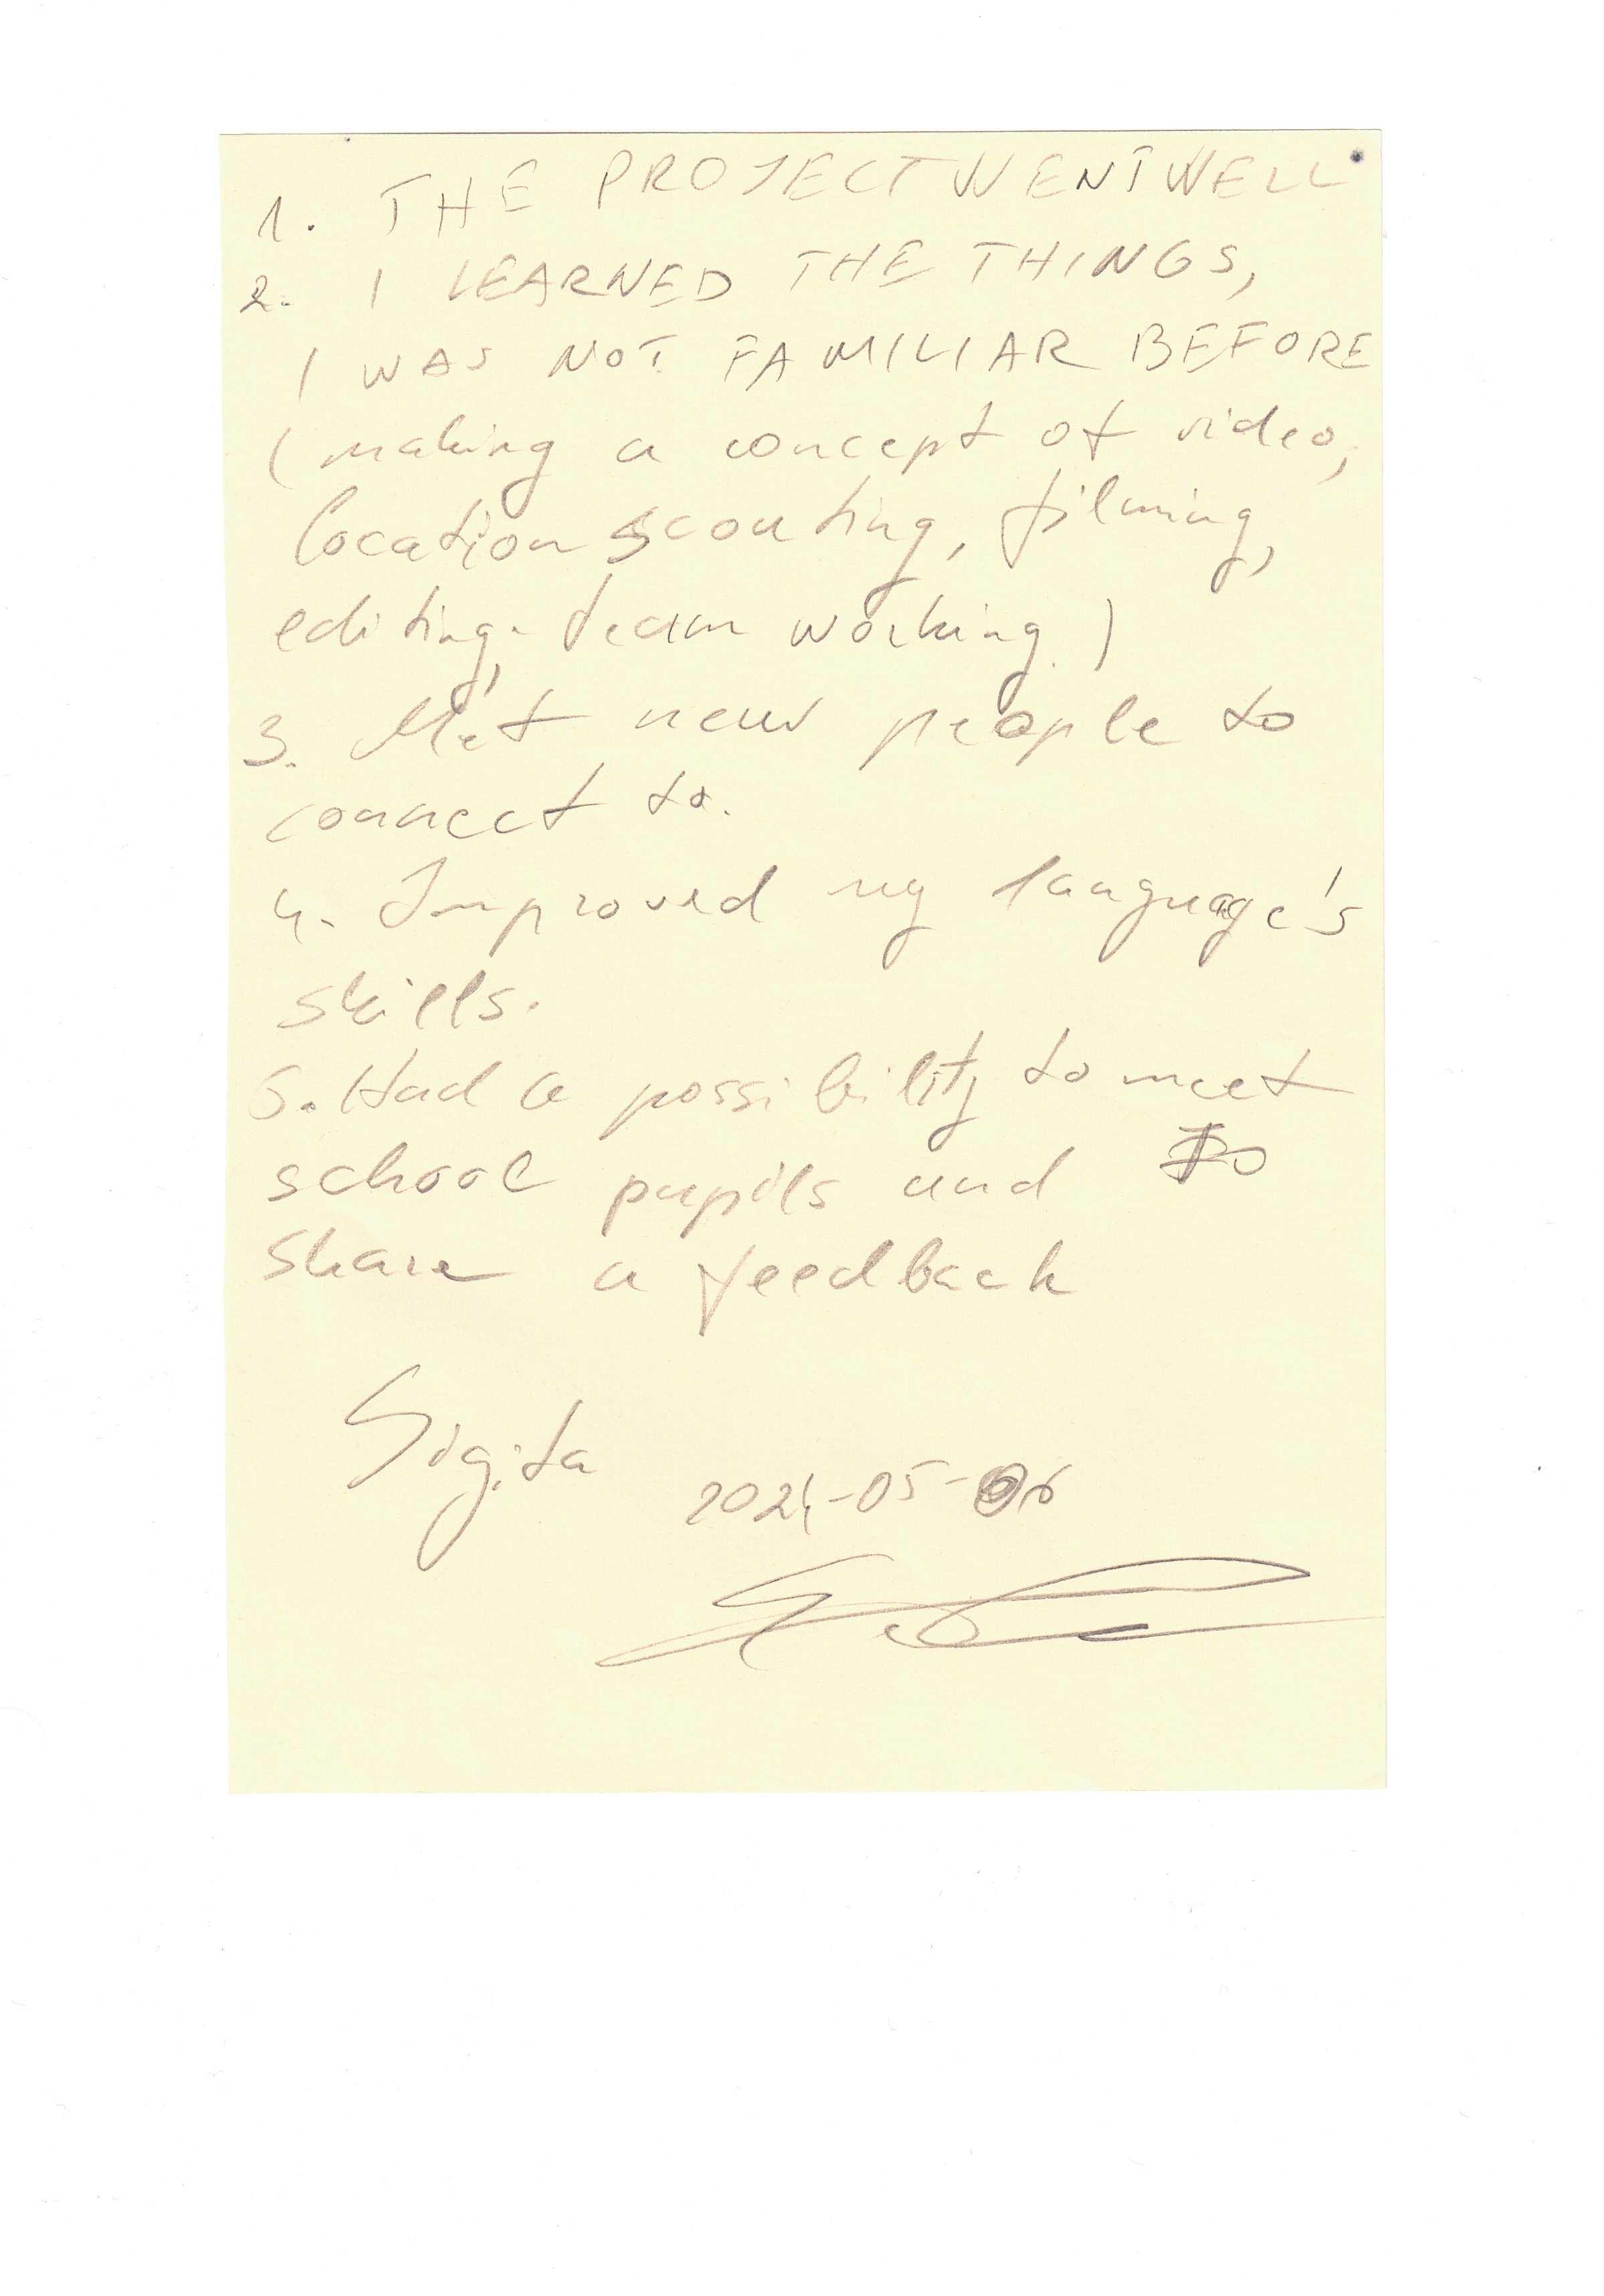 1. THE PROJECT WENT WELL
2. I LEARNED THE THINGS,
I WAS NOT FAMILIAR BEFORE
(making a concept of video,
location scouting, filming,
editing, team working)
3. Met new people to
connect to.
4. Improved my language's
skills.
5. Had a possibility to meet
school pupils and to
share a feedback
Sigita
2024-05-06